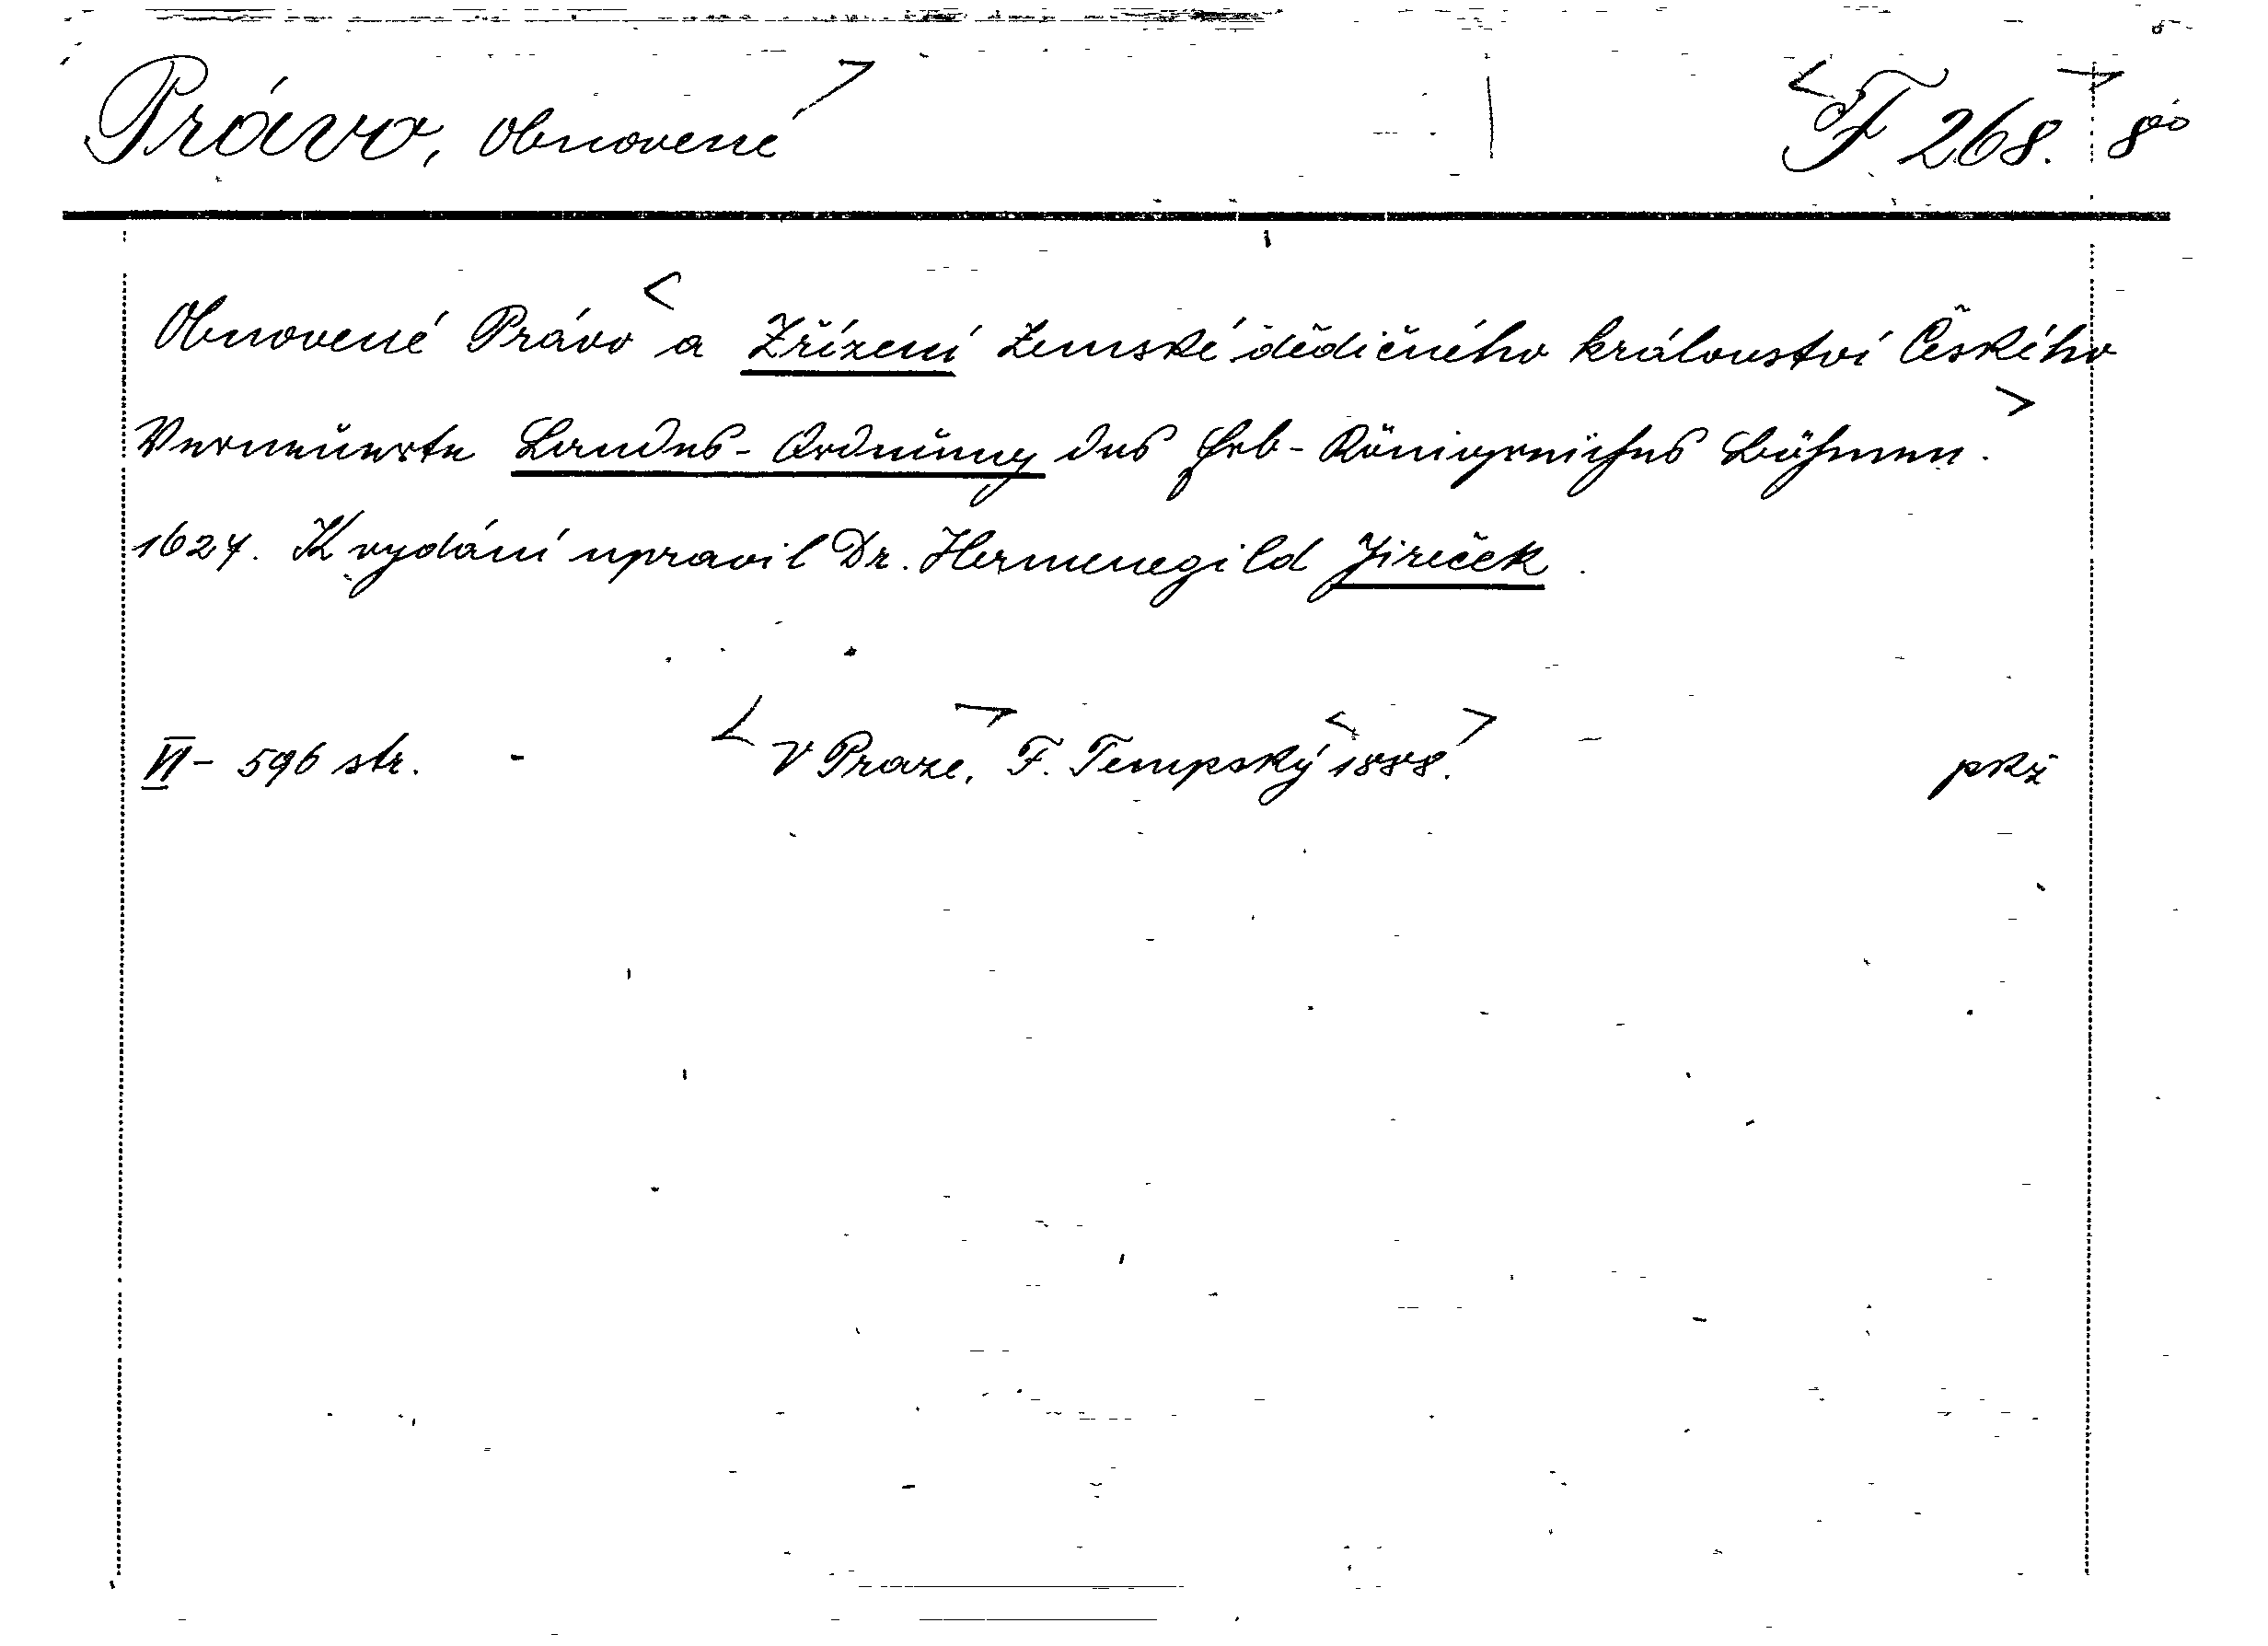 Právo, obnovené F 268. 8ᵛᵒ
Obnovené Právo a Zřízení Zemské dědičného království Českého
Verneuerte Landes-Ordnung des Erb-Königreiches Böhmen.
1627. K vydání upravil Dr. Hermenegild Jireček.
VI - 596 str. - V Praze, F. Tempský 1888.